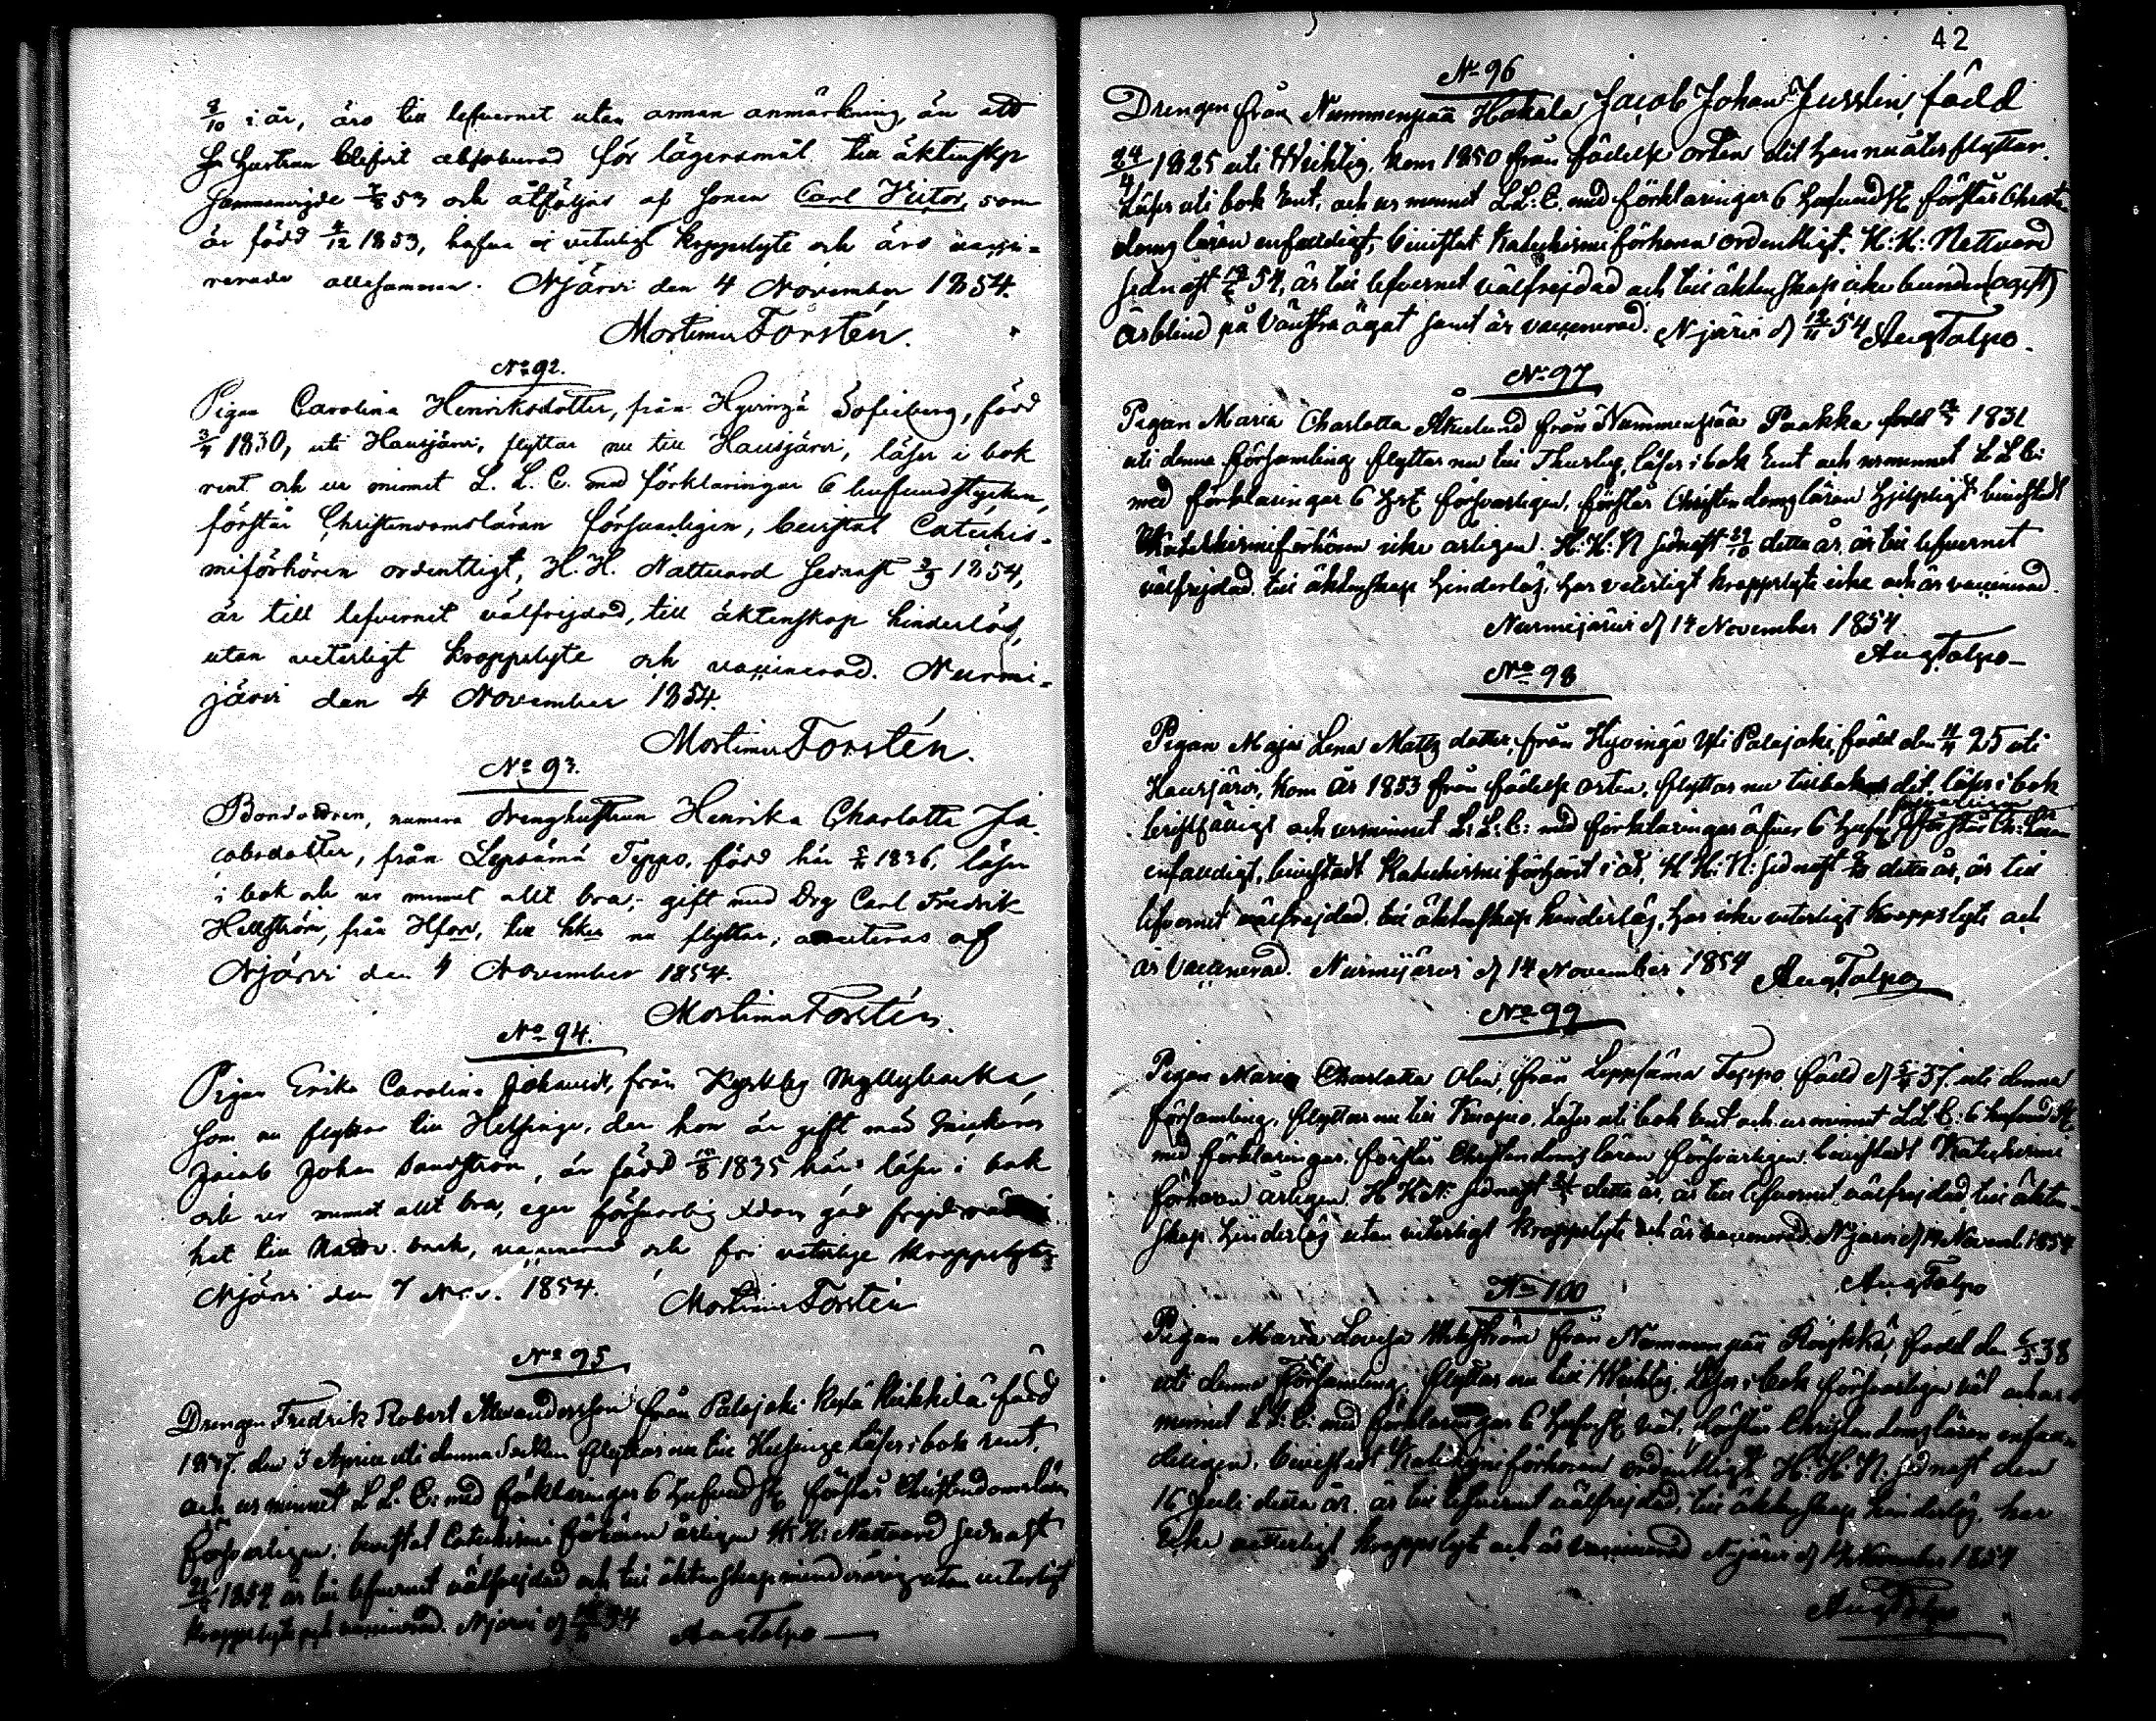 8/10 i år, äro till lefvernet utan annan anmärkning, än att
hustrun blifvit absolverad för lägersmål. till äktenskap
sammanvigde 53 och åtföljas af sonen Carl Victor, som
är född 1853, hafva ej veterligt kroppslyte och äro vacci-
nerade allesamman. Njärvi den 4 November 1854.
Mortimer Forstén.
No 92.
Pigan Carolina Henriksdotter, från Hyvingä Sofieberg, född
1830, uti Hausjärvi, flyttar nu till Hausjärvi, läser i bok
rent och ur minnet L. L. C. med förklaringar 6 hufvudstycken,
förstår Christendomsläran försvarligen, bevistat Catechis-
miförhören ordentligt, H. H. Nattvard sednast 1854,
är till lefvernet välfrejdad, till äktenskap hinderlös,
utan veterligt kroppslyte och vaccinerad. Nurmi-
järvi den 4 November 1854.
Mortimer Forstén.
No 93.
numera drenghustrun Henrika Charlotta Ja-
cobsdotter, från Lepsämä Teppo, född här 1836, läser
i bok och ur minnet allt bra, gift med Drg Carl Fredrik
Hellström, från Hfors, till hken nu flyttar, af
Njärvi den 4 November 1854.
Mortimer Forstén.
No 94.
Pigan Erika Carolina från Kyrkby Myllybacka,
som nu flyttar till Helsinge, der hon är gift med
Jacob Johan Sandström, är född 1835 här läser i bok
och ur minnet allt bra, eger försvarlig god frejd
het till Nattv. vaccinerad och fri veterlige kroppslyte
Njärvi den 7 Nov. 1854. Mortimer Forstén
No 95
Drengen Fredrik Robert Alexandersson från Palojoki Keskikikkilä född
1837 den 3 April uti denna Socken flyttar nu till Helsinge Läser i bok rent,
och ur minnet L. L. C: med förklaringar 6 hufvudst förstår Christendomsläran
försvarligen, bevistat Catechismi förhören årligen H: H: Nattvard sednast
1854 är till lefvernet välfrejdad och till äktenskap minderårig utan veterligt
kroppslyte och vaccinerad. Njärvi d 54 Aug Talpo
42
No 96
Drengen från Nummenpää Hakala Jacob Johan Jusslin född
24/4 1825 uti Wichtis, kom 1850 från födelse orten dit han nu återflyttar.
Läser uti bok rent, och ur minnet L.L: C. med förklaringar 6 hufvudst förstår Christen
doms läran enfaldigt, bevistat Katechismiförhören ordentligt. H: H: Nattvard
sednast 54, är till lefvernet välfrejdad och till äktenskap icke bunden (ogift)
är blind på venstra ögat samt är vaccinerad. Njärvi d 12/11 54 Aug Talpo.
No 97
Pigan Maria Charlotta Åkerlund från Nummenpää Paakka född 1831
uti denna Församling flyttar nu till Thusby, läser i bok rent och ur minnet L L C:
med förklaringar 6 hfst försvarligen, förstår Christendomsläran hjelpligt bevistadt
Katechismiförhören icke årligen. H: H: N sednast 29/10 detta år, är till lefvernet
välfrejdad till äktenskap hinderlös, har veterligt kroppslyte icke och är vaccinerad.
Nurmijärvi d 14 November 1854
Aug Talpo
No 98
Pigan Maja Lena Matts dotter, från Hyvingä Yli Palojoki, född den 25 uti
Hausjärvi, kom år 1853 från födelse orten, flyttar nu tillbaka dit, läser i bok
och ur minnet L: L: C: med förklaringar öfver 6 hufst förstår Ch: läran
enfaldigt, bevistadt Katechismiförhöret i år, H H: N: sednast detta år, är till
lefvernet välfrejdad, till äktenskap hinderlös, har icke veterligt kroppslyte och
är vaccinerad. Nurmijärvi d 14 November 1854 Aug Talpo
No 99
Pigan Maria Charlotta Olin, från Leppsämä Teppo född d 37 uti denna
församling, flyttar nu till Kuopio. Läser uti bok rent och ur minnet L L C: 6 hufvudst
med förklaringar. förstår Christendoms läran försvarligen, bevistadt Katechismi
förhören årligen. H H N: sednast detta år, är till lefvernet välfrejdad, till äkten-
skap hinderlös utan veterligt kroppslyte och är vaccinerad. Njärvi d 14 Novemb. 1854
Aug Talpo
No 100
Pigan Maria Lovisa från Nummenpää född den 38
uti denna Församling, flyttar nu till Wichtis. Läser i bok försvarligen väl och ur
minnet L L: C: med förklaringar 6 hufvst väl, förstår Christendomsläran enfal-
deligen, bevistadt Katechismi förhören ordentligt. H: H: N. sednast den
16 Juli detta år. är till lefvernet välfrejdad, till äktenskap hinderlös, har
icke veterligt kroppslyte och är vaccinerad Njärvi d 14 November 1854
Aug Talpo